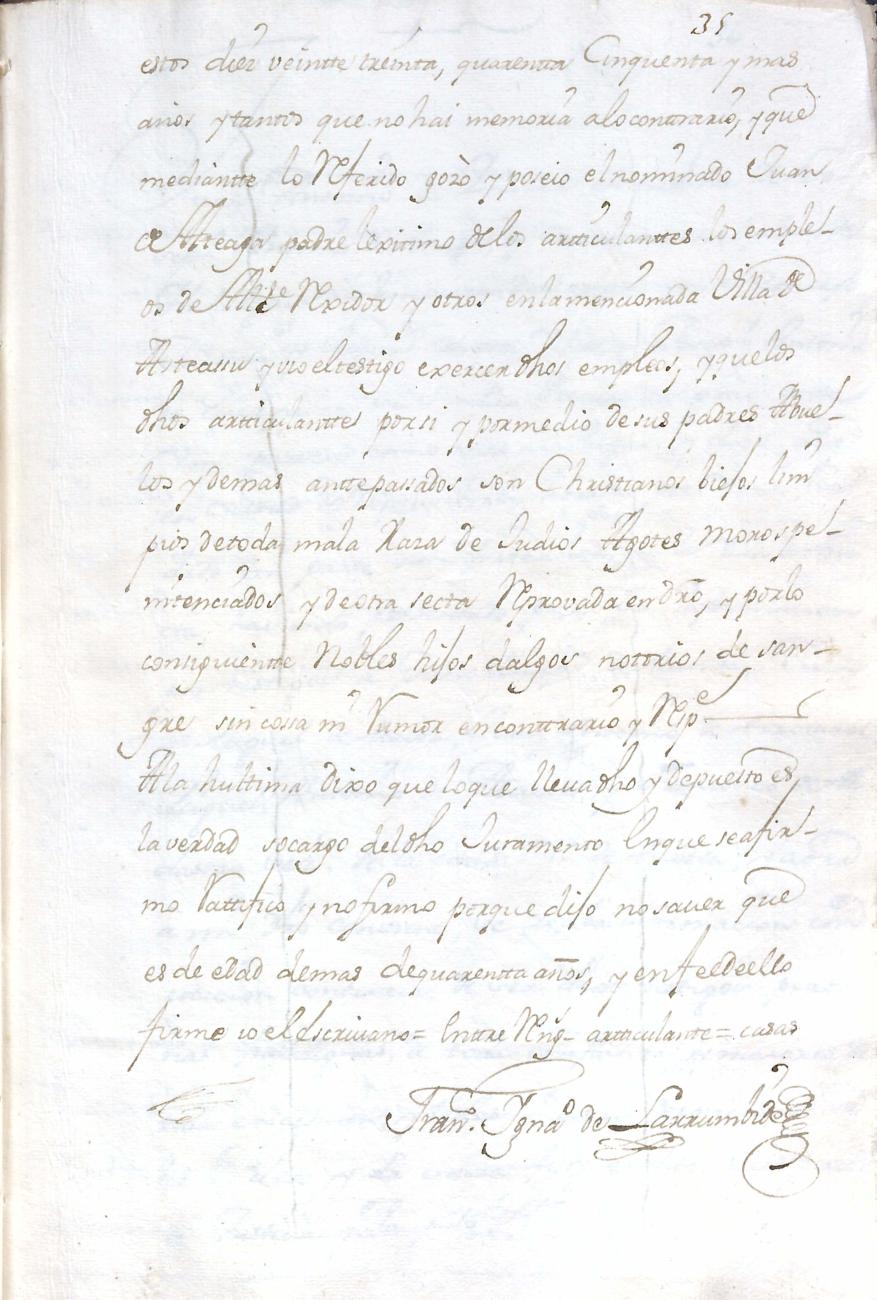 35
estos diez veintte treinta, quarentta Cinquenta y mas
años y tantos que no hai memoria alo conttrario, y que
mediantte lo Referido gozò y poseio el nominado Juan
de Arteaga padre lexitimo de los articulanttes los emple-
os de Alcde Rexidor y otros en la mencionada Villa de
Asteassu y vio el testigo exercer dhos empleos, y que los
dhos articulanttes por si y por medio de sus padres Abue-
los y demas anttepassados son Christianos biejos lim
pios de toda mala Raza de Judios Agotes Moros pe-
nitenciados y de otra secta Reprovada en dro, y por lo
consiguientte Nobles hijos dalgos nottorios de san-
gre sin cossa ni Rumor en conttrario y Respe
A la hulttima dixo que lo que lleva dho y depuesto es
la verdad so cargo del dho Juramento En que se afir-
mo Rattifico y no firmo porque dijo no saver que
es de edad de mas de quarentta años, y en fee de ello
firme io el Escrivano= Enttre Rengs- articulante= casas
Frano. Ignao de Larrumbide